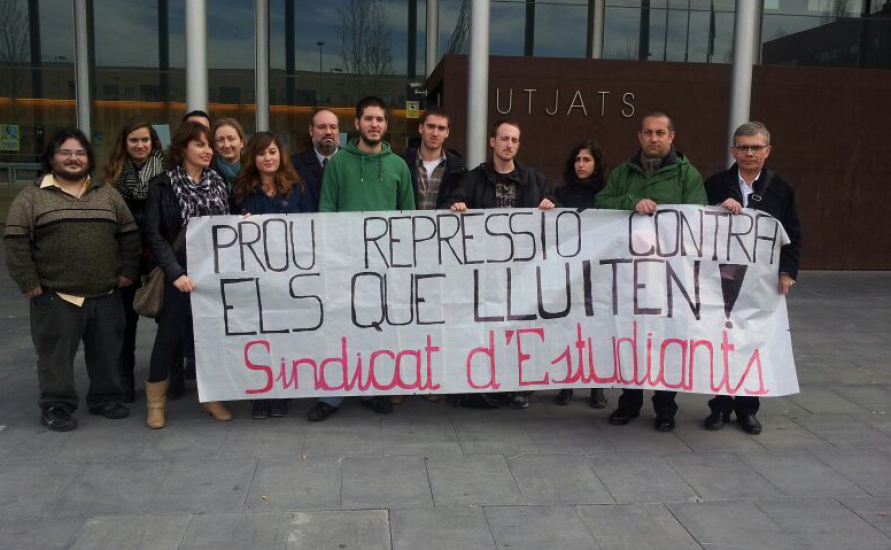 UTJATS
PROU REPRESSIÓ CONTRA
ELS QUE LLUITEN!
Sindicat d'Estudiants